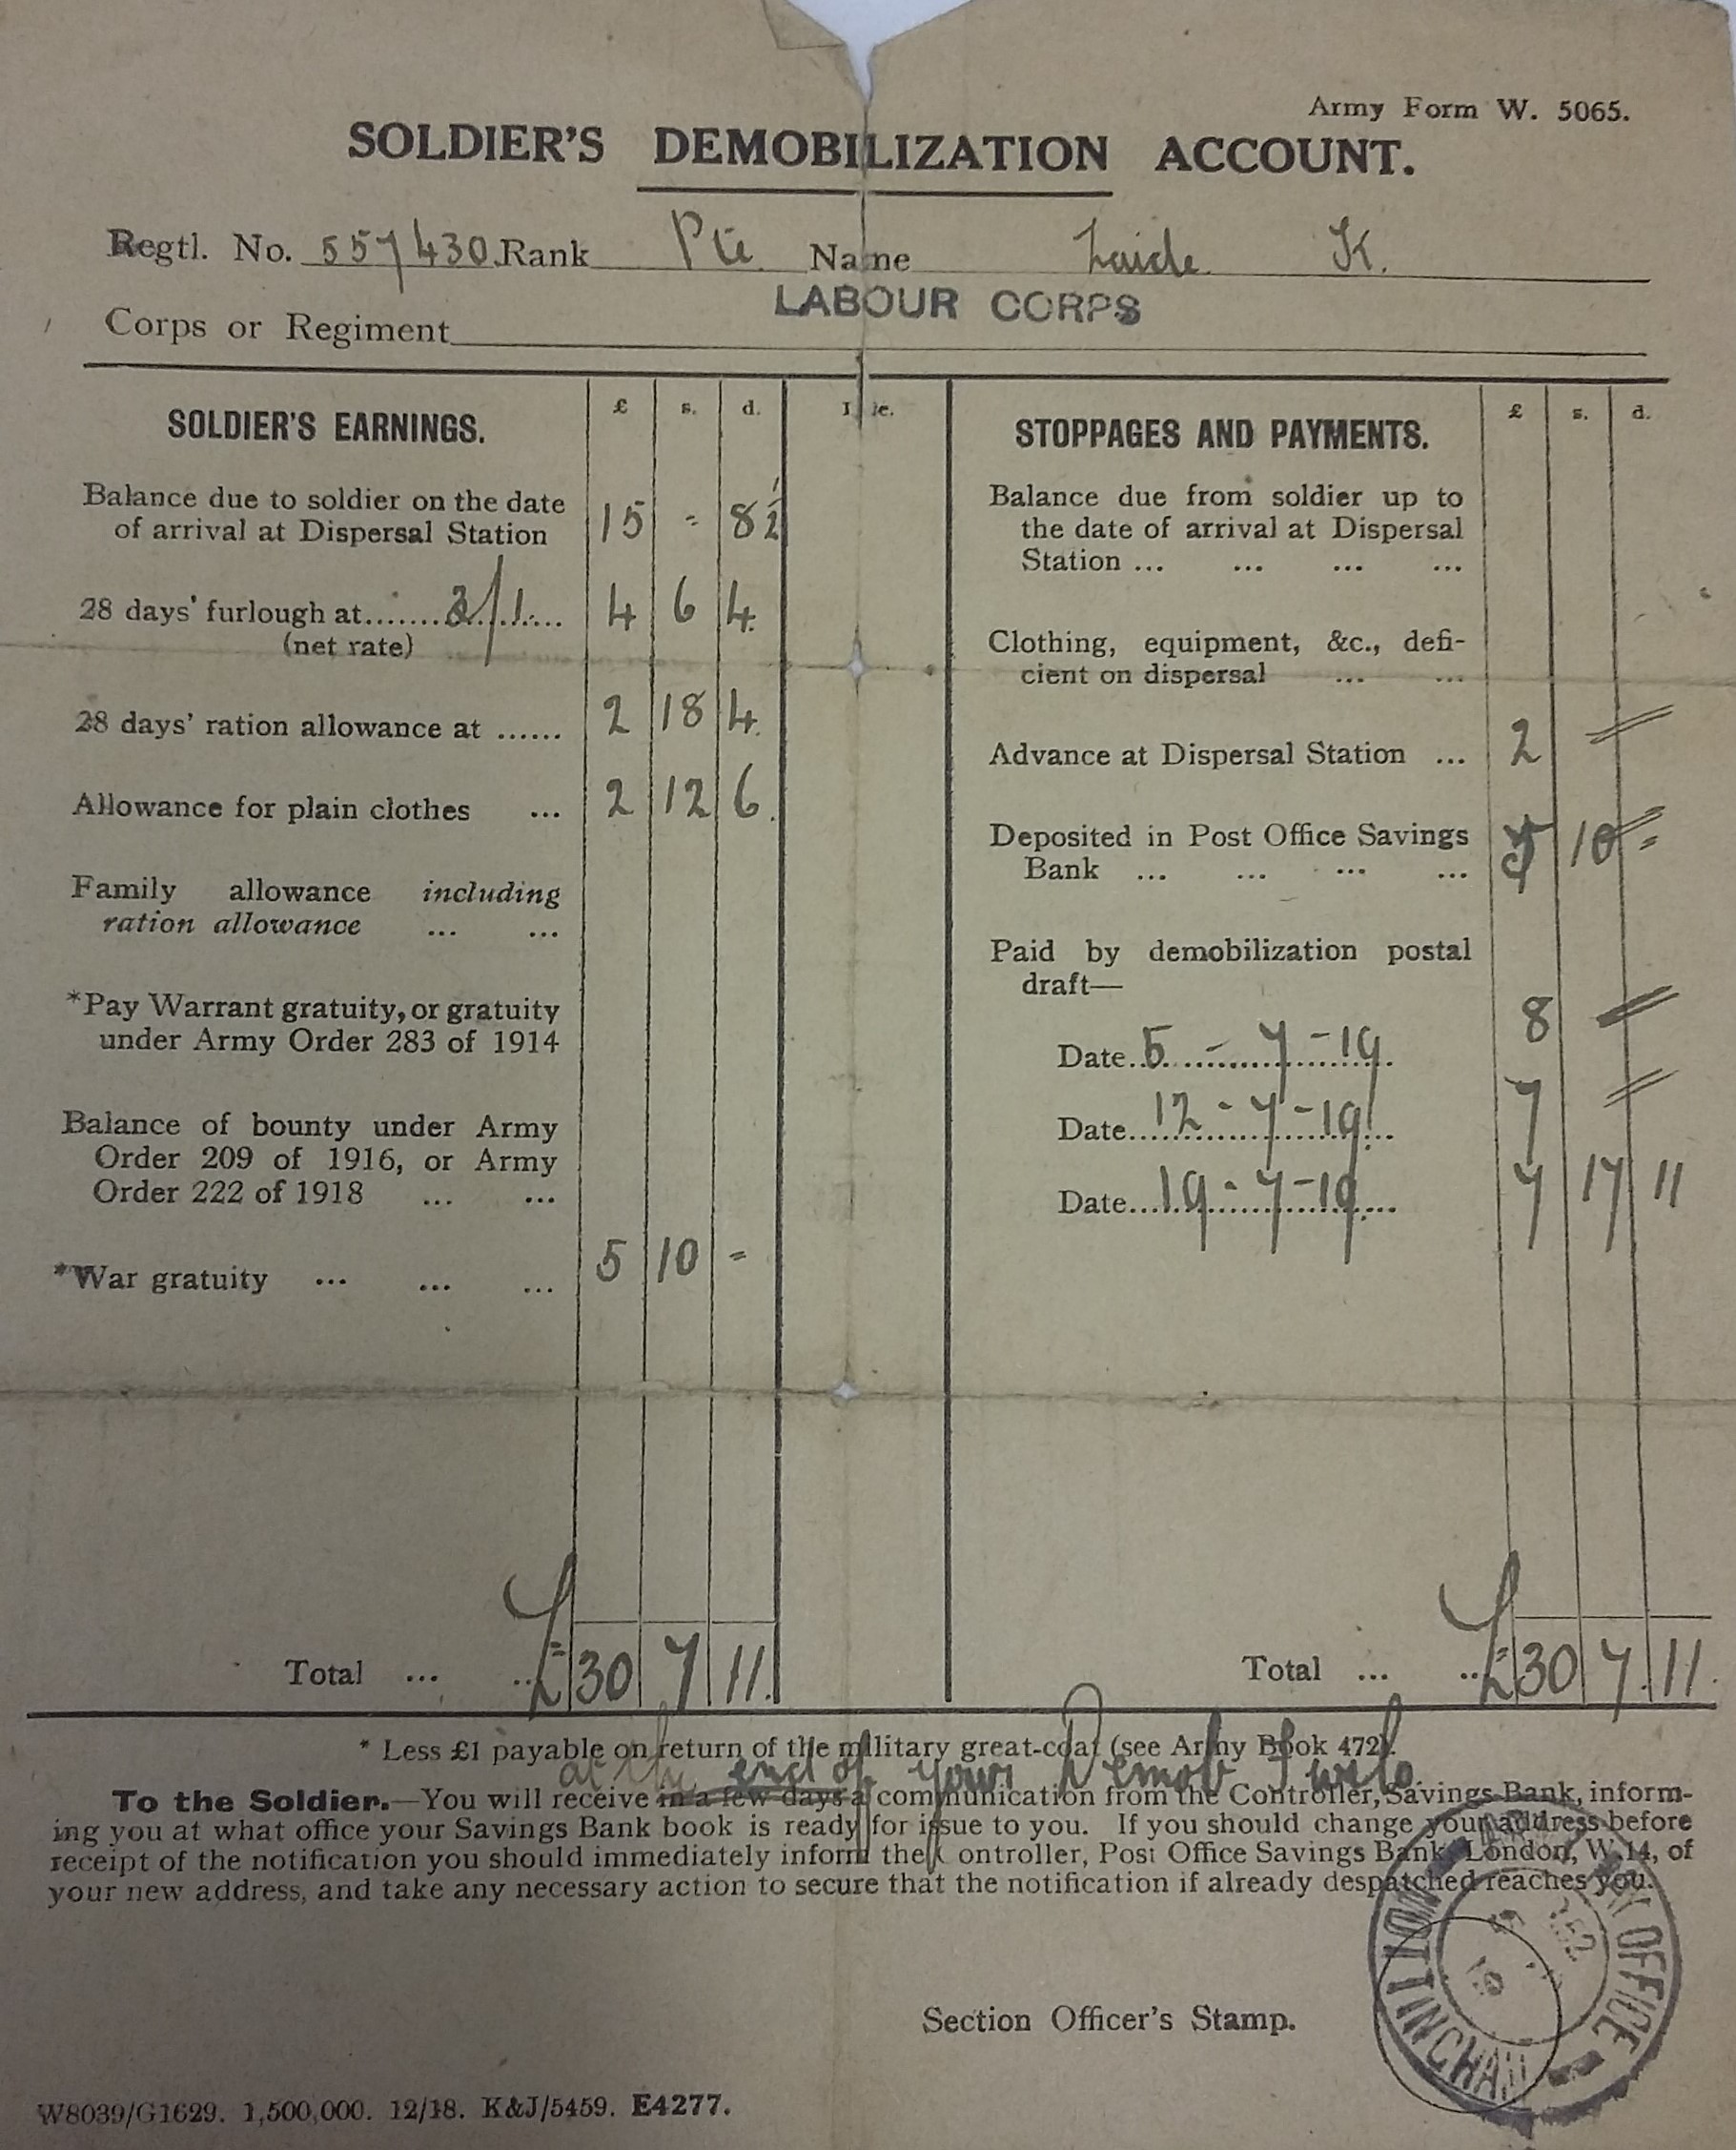 Army Form W. 5065.
SOLDIER'S DEMOBILIZATION ACCOUNT.
Regtl. No. 557430 Rank Pte Name Laide K.
Corps or Regiment LABOUR CORPS
SOLDIER'S EARNINGS. £ s. d.
Balance due to soldier on the date
of arrival at Dispersal Station 15 - 8½
28 days' furlough at........3/1....... 4 6 4
(net rate)
28 days' ration allowance at ...... 2 18 4
Allowance for plain clothes ... 2 12 6
Family allowance including
ration allowance ... ...
*Pay Warrant gratuity, or gratuity
under Army Order 283 of 1914
Balance of bounty under Army
Order 209 of 1916, or Army
Order 222 of 1918 ... ...
*War gratuity ... ... ... 5 10 -
Total ... ...£ 30 7 11
STOPPAGES AND PAYMENTS. £ s. d.
Balance due from soldier up to
the date of arrival at Dispersal
Station ... ... ... ...
Clothing, equipment, &c., defi-
cient on dispersal ... ...
Advance at Dispersal Station ... 2
Deposited in Post Office Savings
Bank ... ... ... ... 5 10 =
Paid by demobilization postal
draft—
Date 5 - 7 - 19 8
Date 12 - 7 - 19 7
Date 19 - 7 - 19 7 17 11
Total ... ...£ 30 7 11
* Less £1 payable on return of the military great-coat (see Army Book 472).
at the end of your Demob Furlo.
To the Soldier.—You will receive in a few days a communication from the Controller, Savings Bank, inform-
ing you at what office your Savings Bank book is ready for issue to you. If you should change your address before
receipt of the notification you should immediately inform the Controller, Post Office Savings Bank, London, W.14, of
your new address, and take any necessary action to secure that the notification if already despatched reaches you.
Section Officer's Stamp.
OFFICE
W8039/G1629. 1,500,000. 12/18. K&J/5459. E4277.